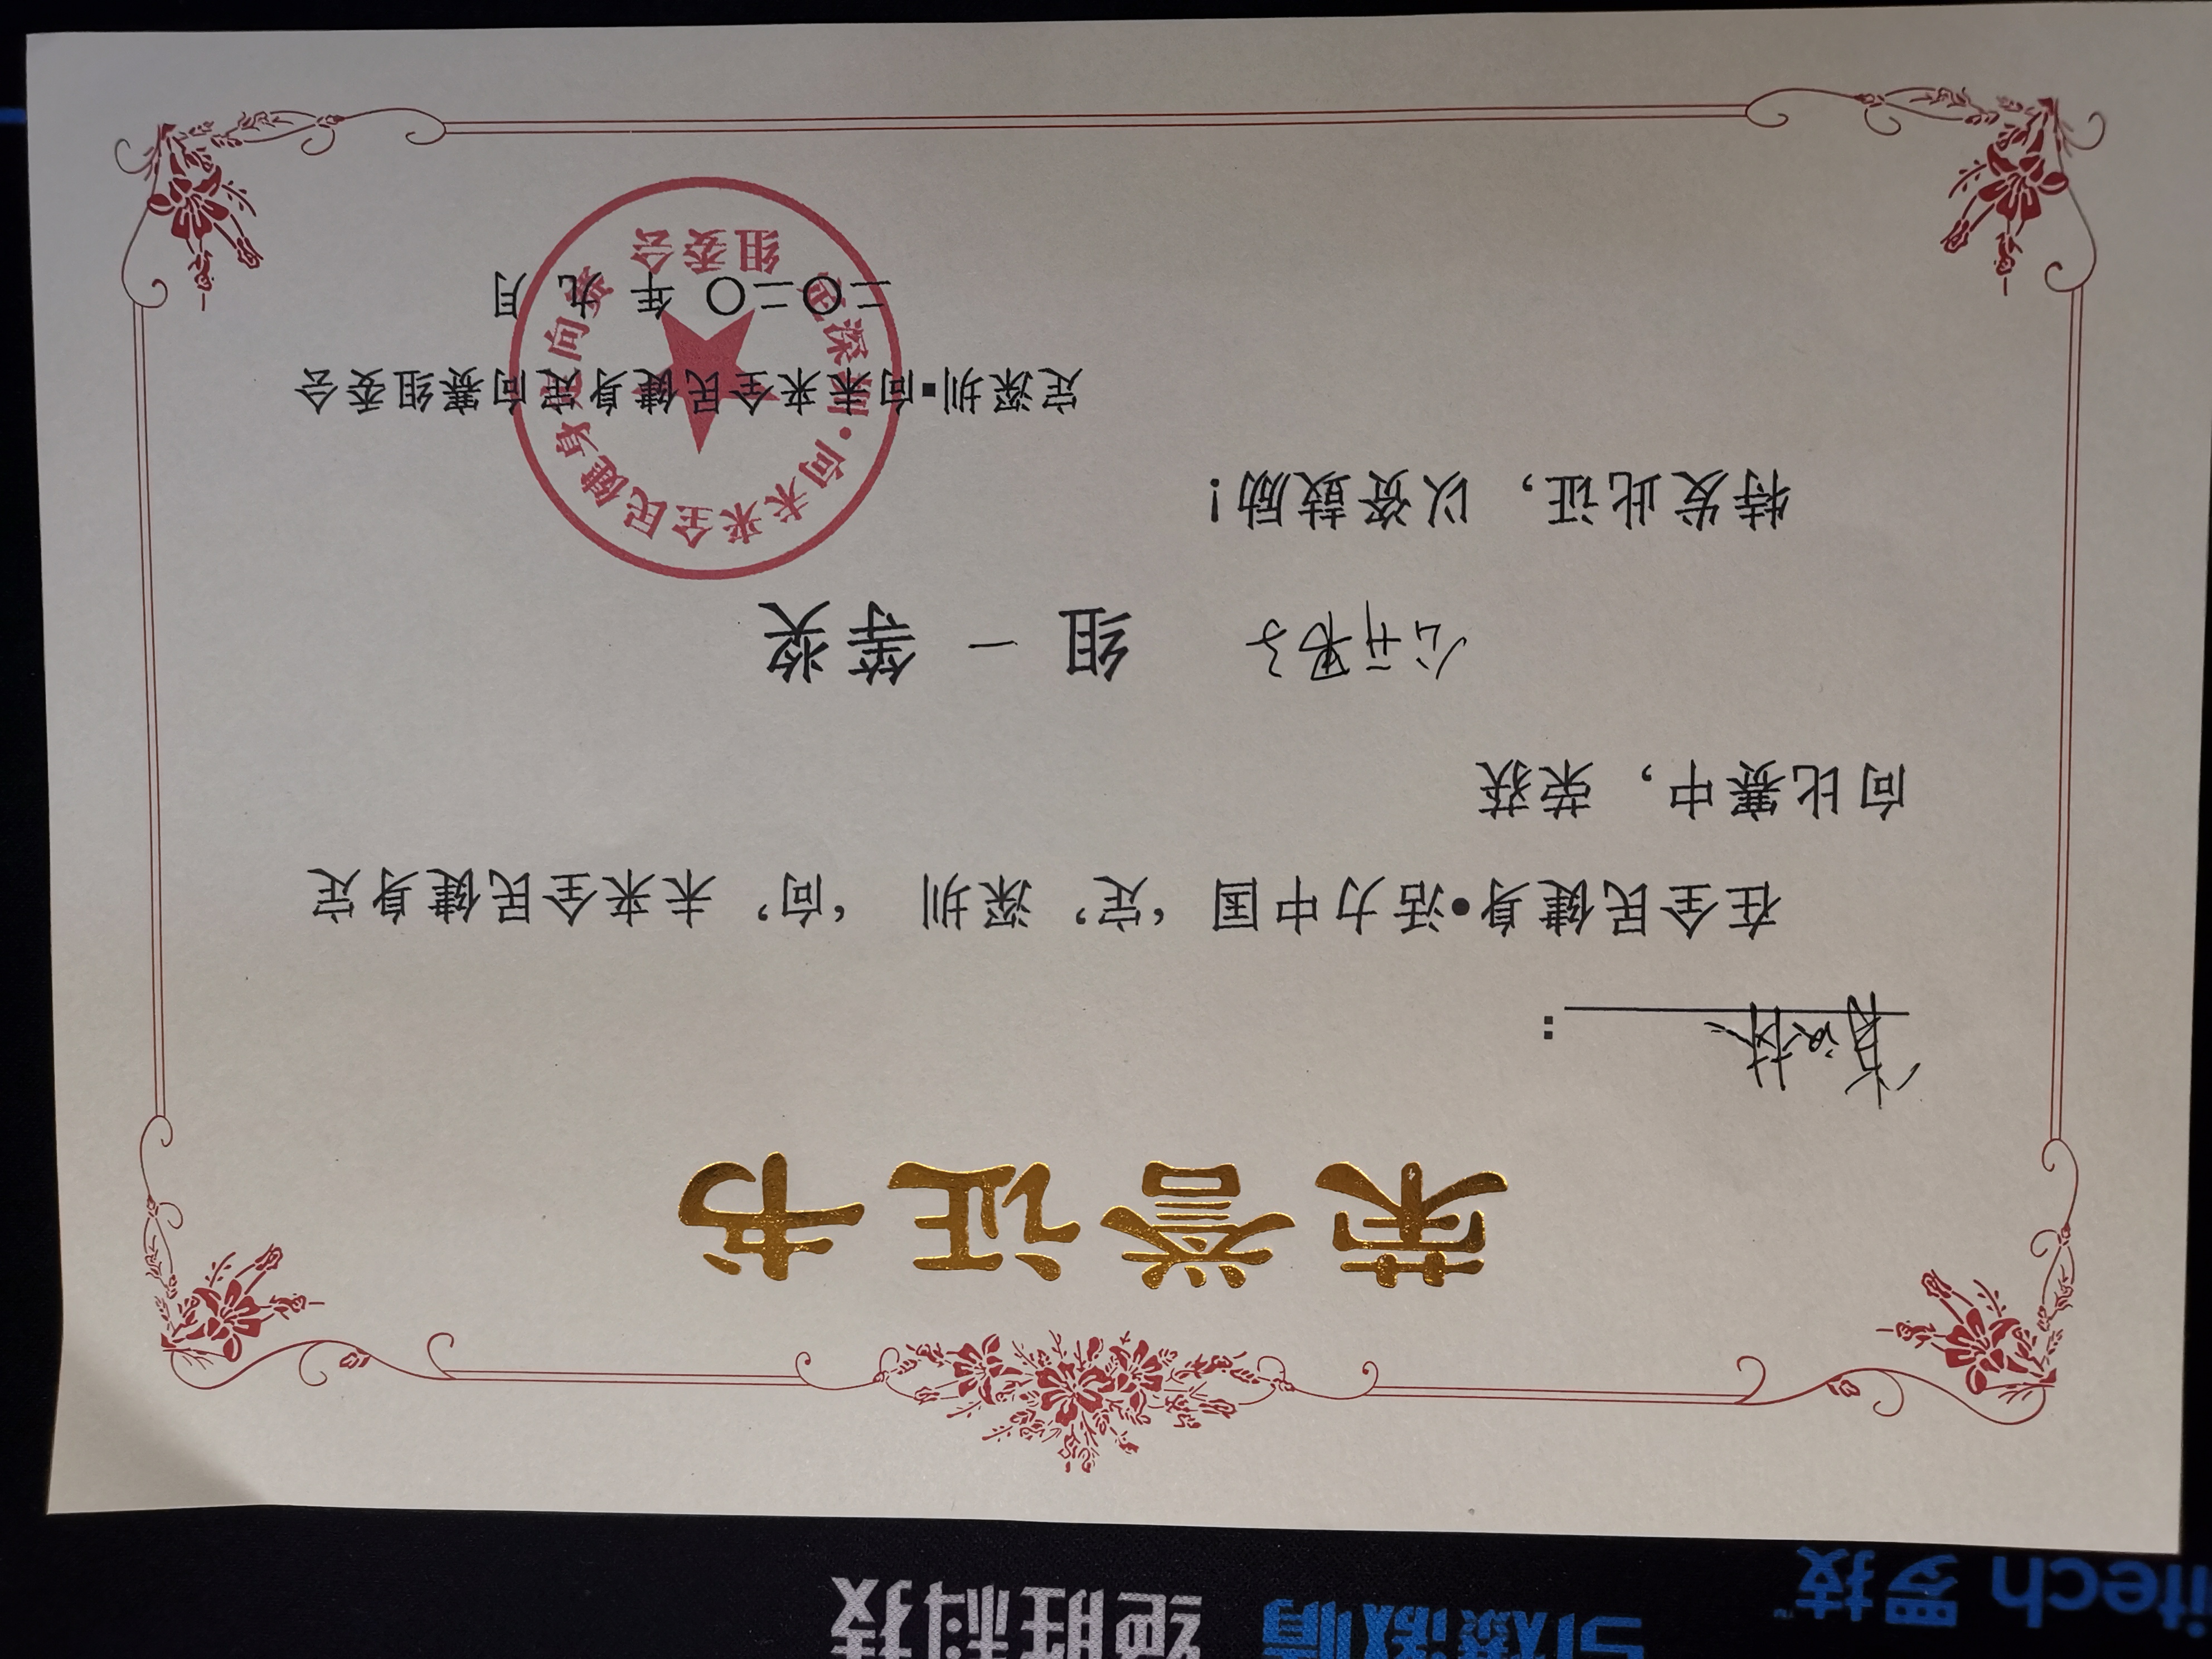 itech 罗技™
引爆激情 绝胜科技
荣誉证书
肖汉林:
在全民健身•活力中国‘定’深圳 ‘向’未来全民健身定
向比赛中，荣获
公开男子 组 一 等奖
特发此证，以资鼓励！
定深圳▪向未来全民健身定向赛组委会
二〇二〇 年 九 月
定深圳•向未来全民健身定向赛
组委会